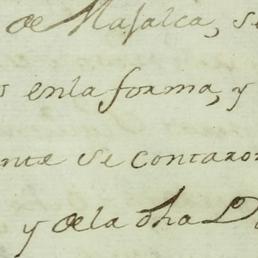 de Masalca, se
s enla forma, y
nte se contaron
y dela dha